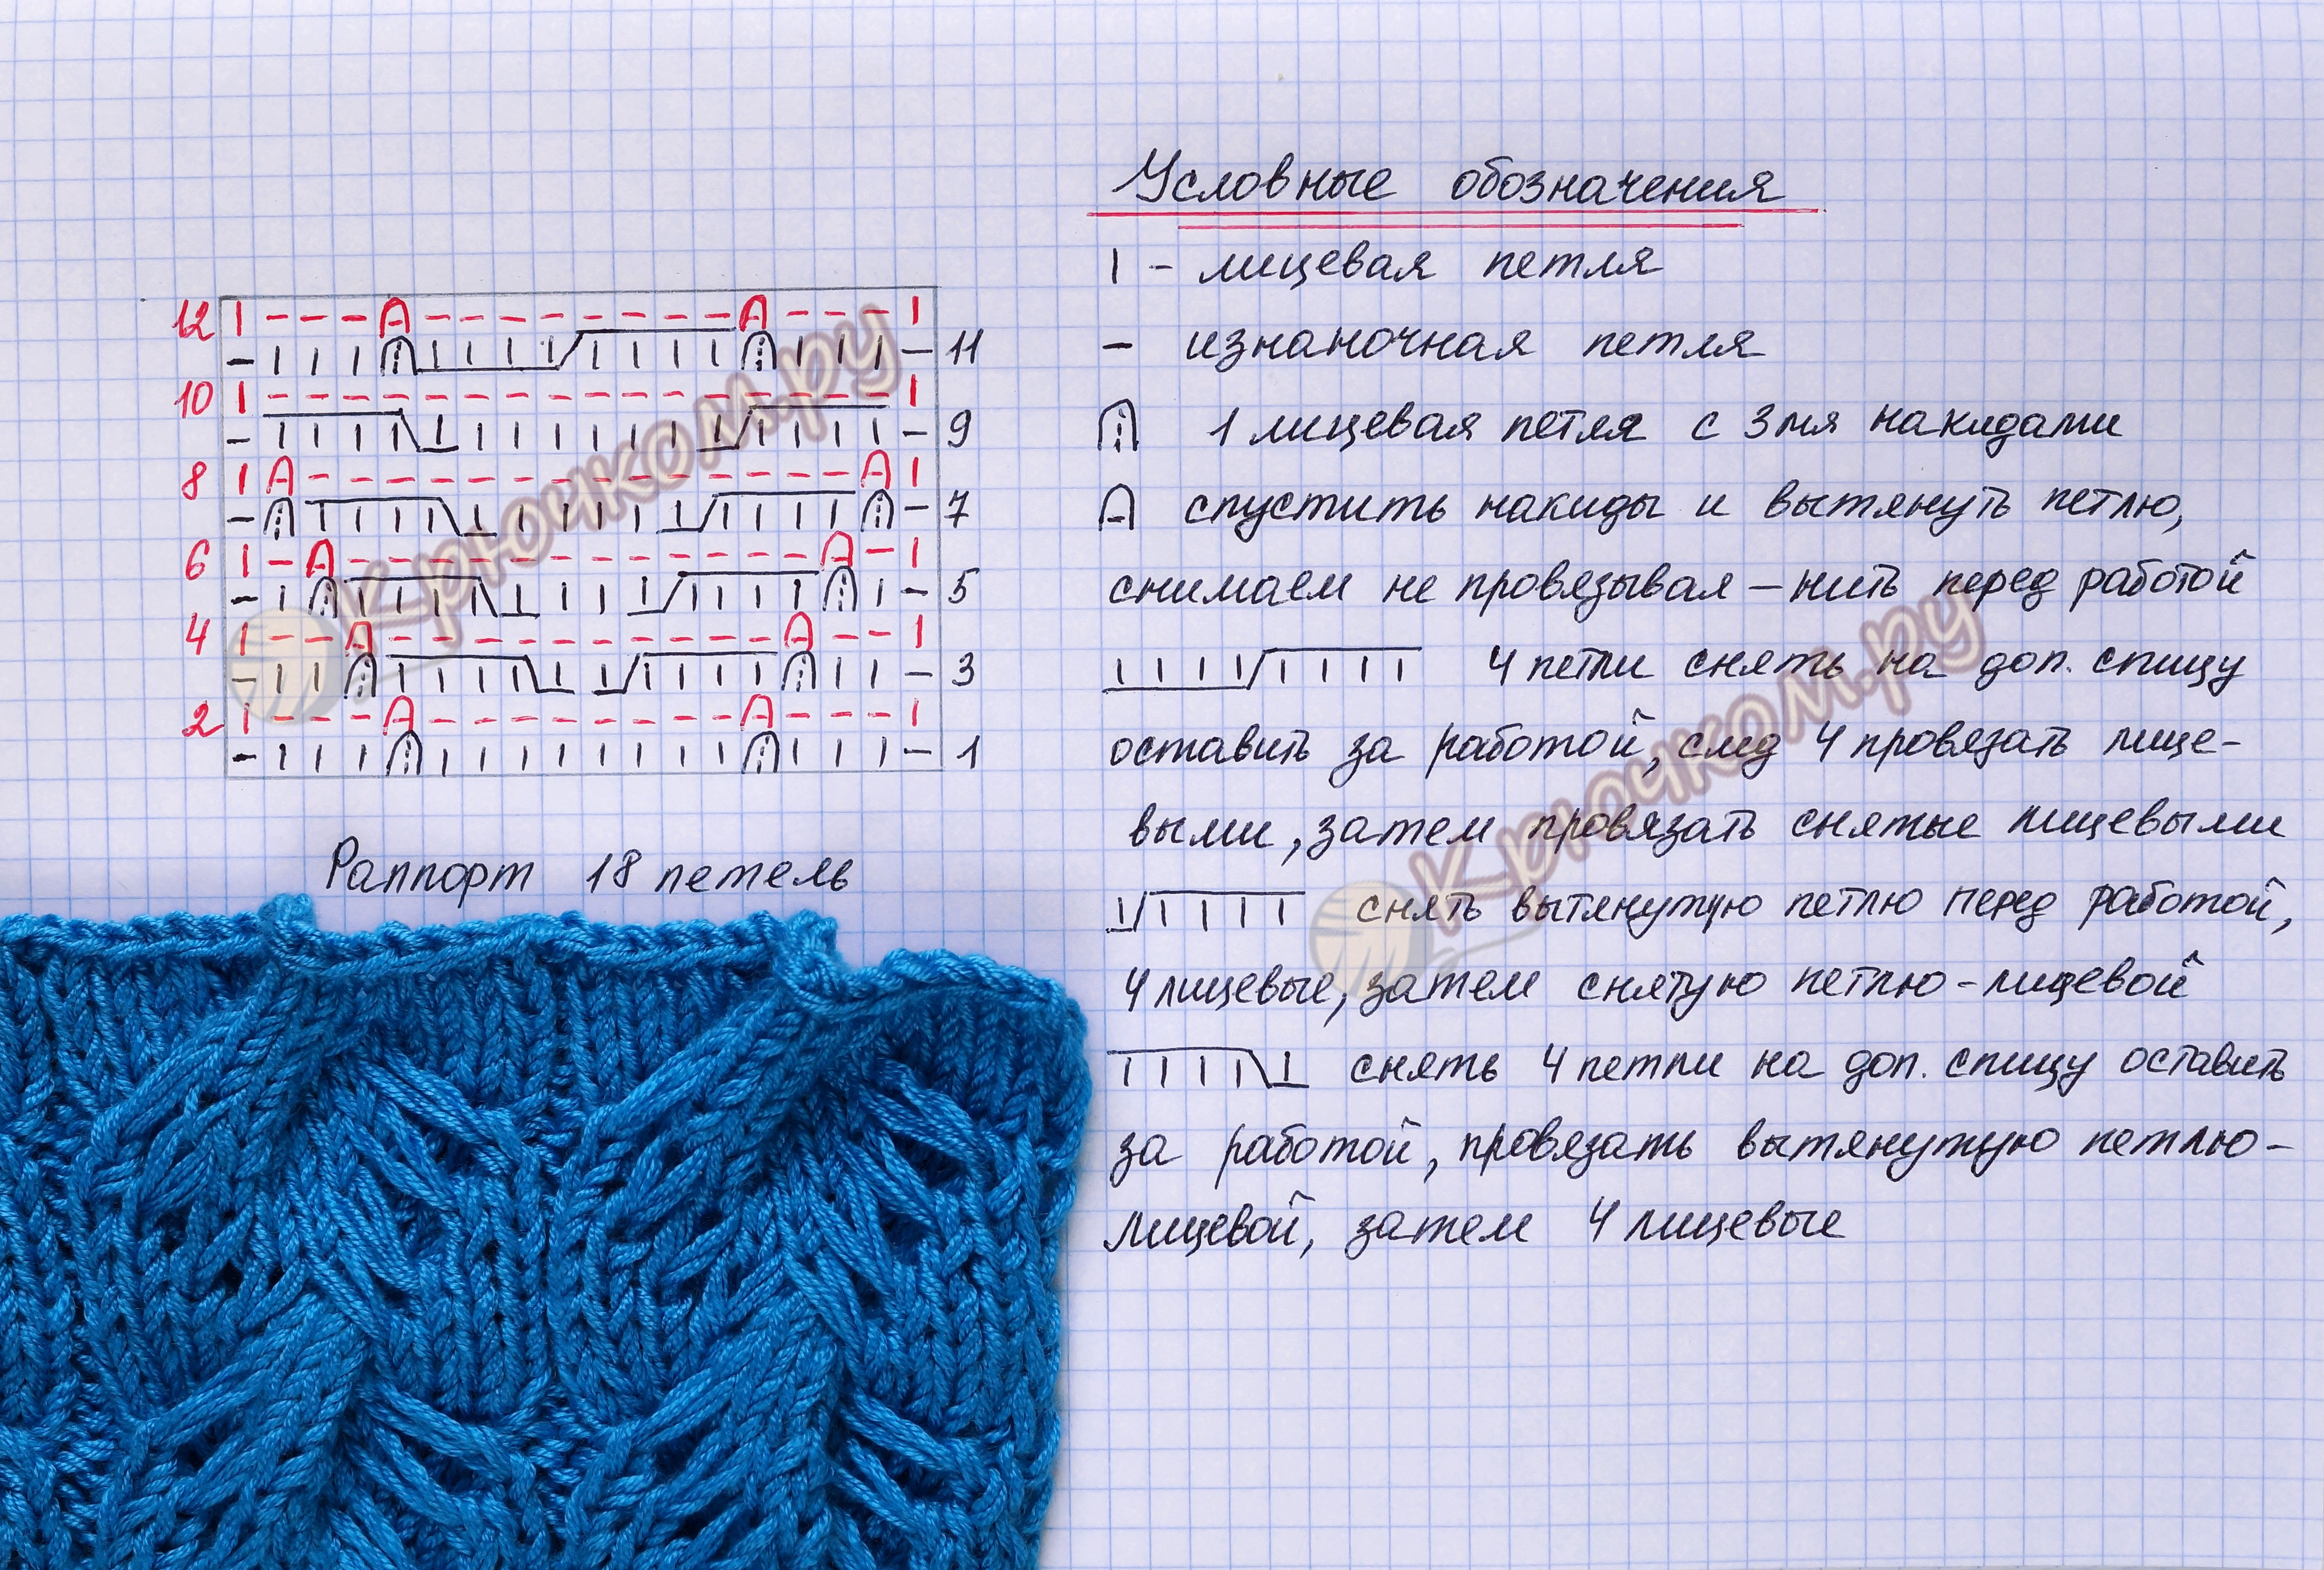 Условные обозначения
| - лицевая петля
- изнаночная петля
1 лицевая петля с 3мя накидами
спустить накиды и вытянуть петлю,
снимаем не провязывая - нить перед работой
4 петли снять на доп. спицу
оставить за работой, след 4 провязать лице-
выми, затем провязать снятые лицевыми
снять вытянутую петлю перед работой,
4 лицевые, затем снятую петлю - лицевой
снять 4 петли на доп. спицу оставить
за работой, провязать вытянутую петлю -
лицевой, затем 4 лицевые
12
11
10
9
8
7
6
5
4
3
2
1
Раппорт 18 петель
Крючком.ру
Крючком.ру